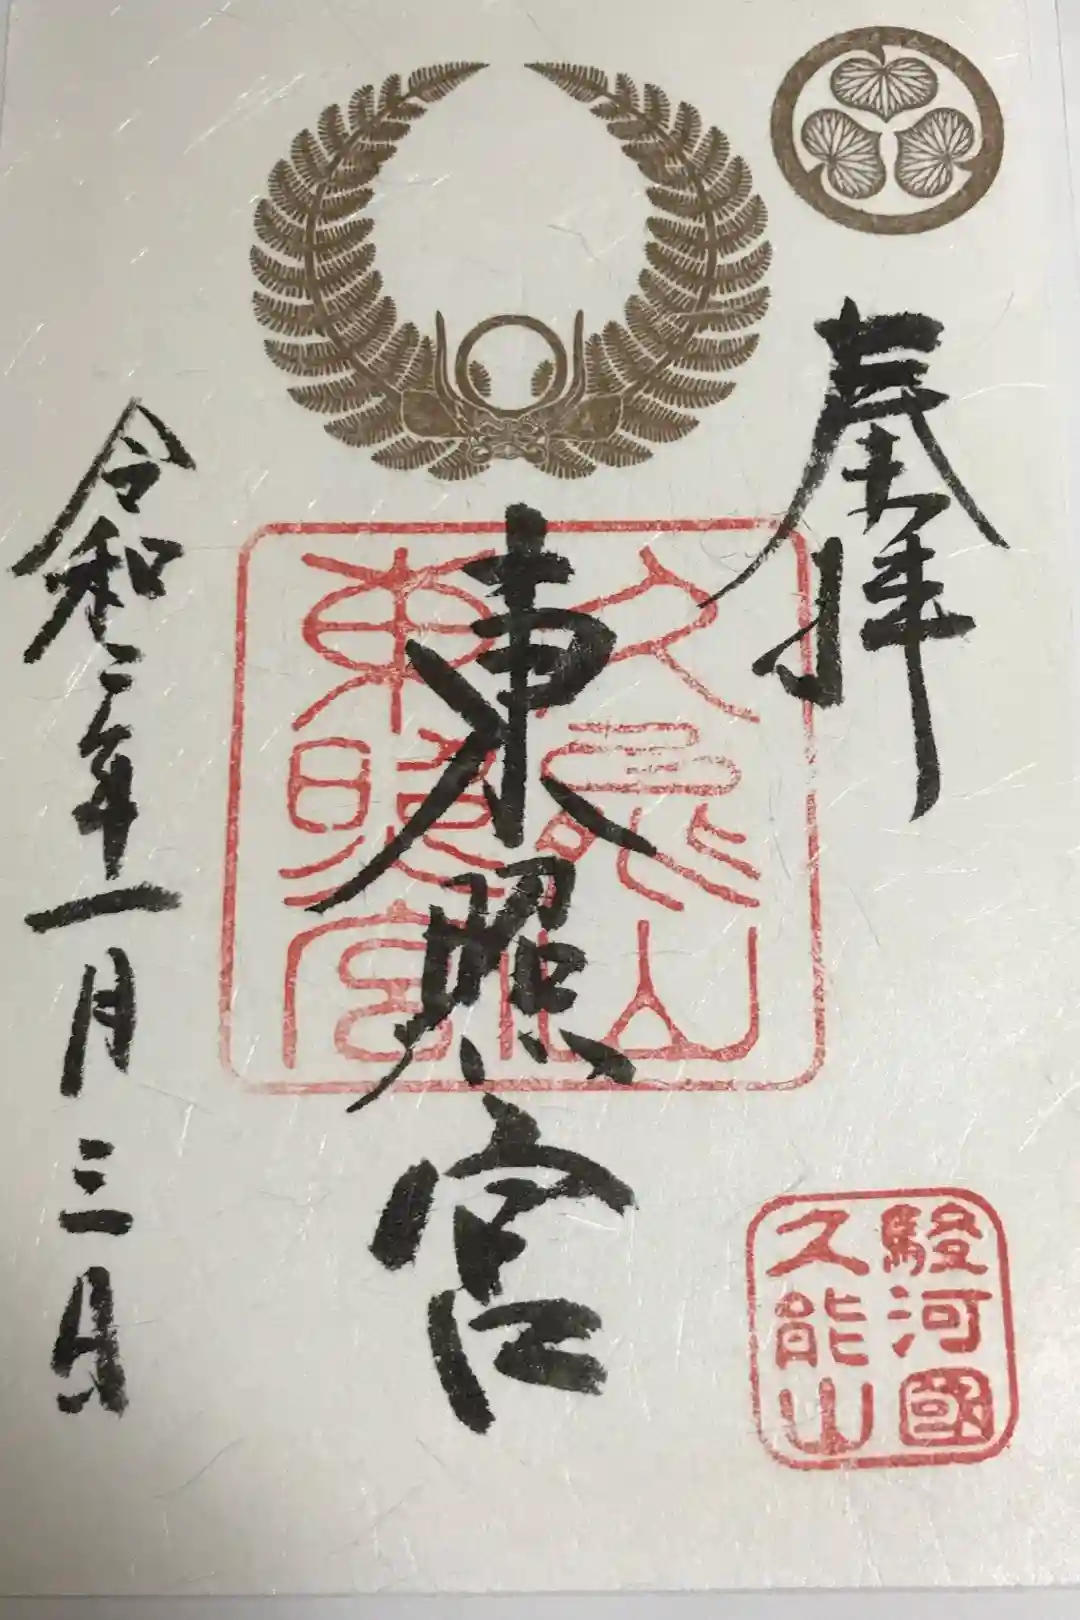 奉拝
東照宮
令和二年一月三日
久能山
東照宮
駿河國
久能山